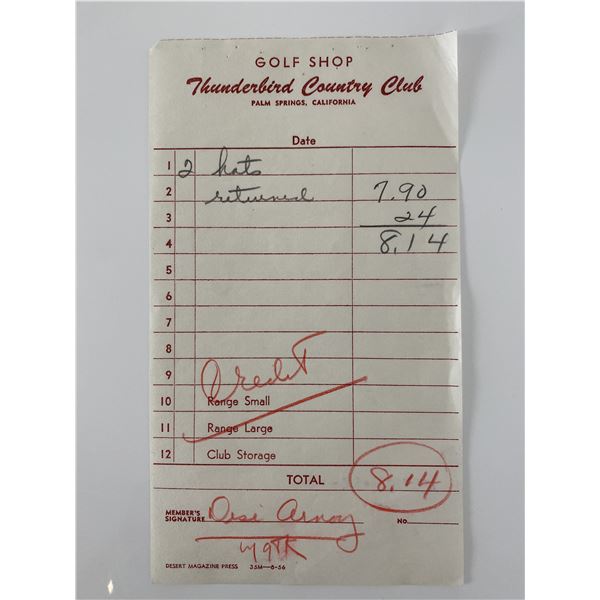 GOLF SHOP
Thunderbird Country Club
PALM SPRINGS, CALIFORNIA
Date
1 2 hats
2 returned 7.90
3 24
4 8.14
5
6
7
8
9 Credit
10 Range Small
11 Range Large
12 Club Storage
TOTAL 8.14
MEMBER'S SIGNATURE Desi Arnaz No.
DESERT MAGAZINE PRESS 35M—8-56